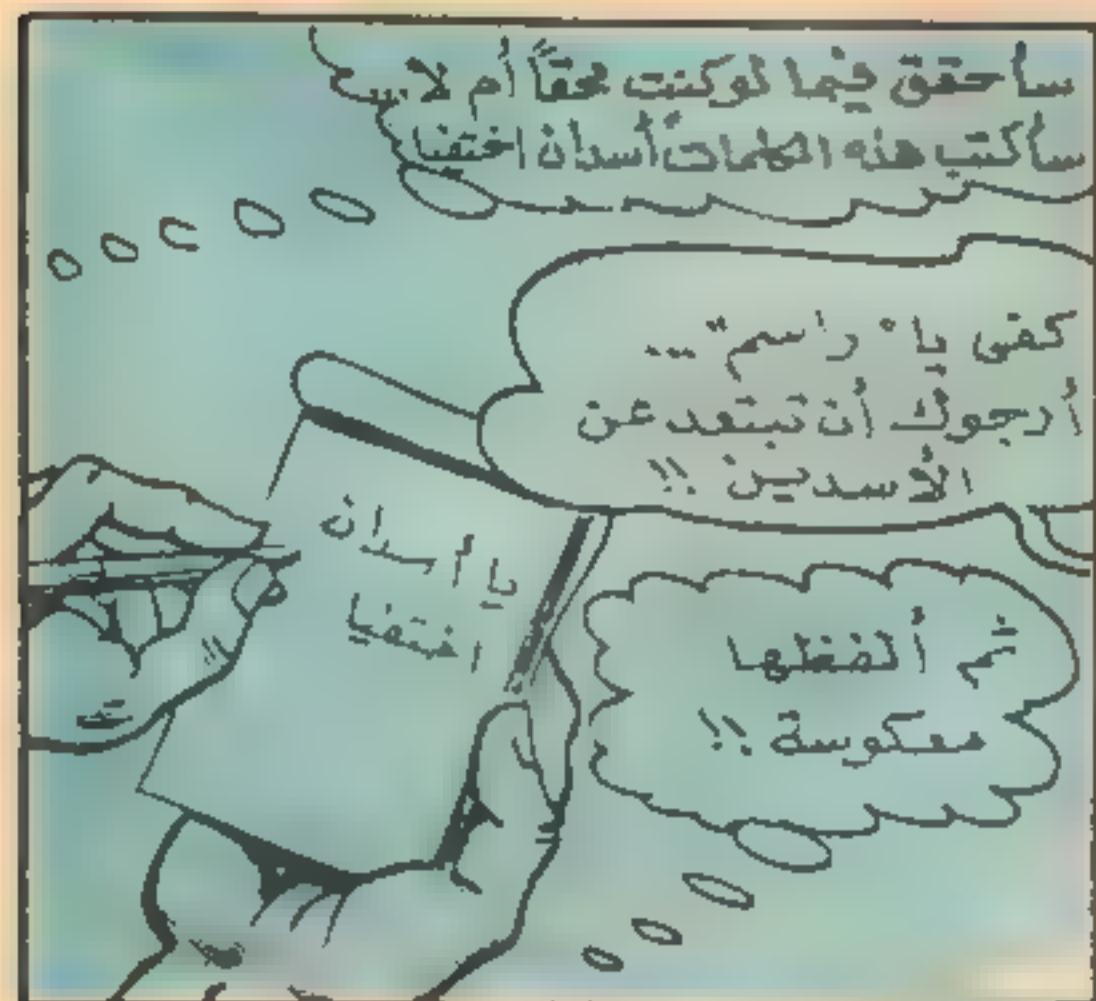 سأحقق فيما لوكنت محقاً أم لا...
سأكتب هذه الكلمات "أسدان اختفيا
كفى يا "راسم"...
أرجوك أن تبتعد عن
الأسدين !!
يا أسدان
اختفيا
ثم ألفظها
معكوسة !!